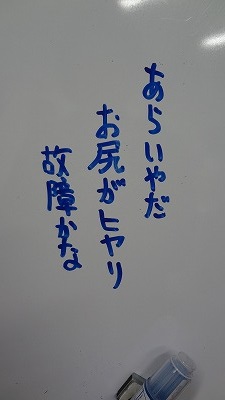 あらいやだ
お尻がヒヤリ
故障かな